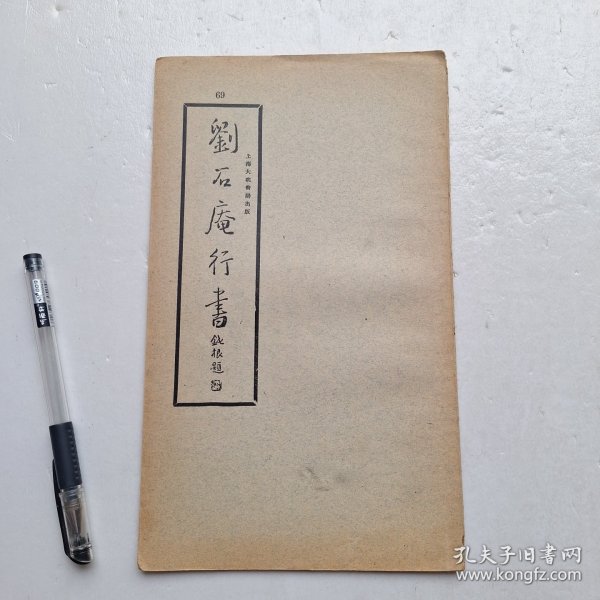 69
劉石庵行書
鈍根題
上海大眾書局出版
孔夫子旧书网
www.kongfz.com